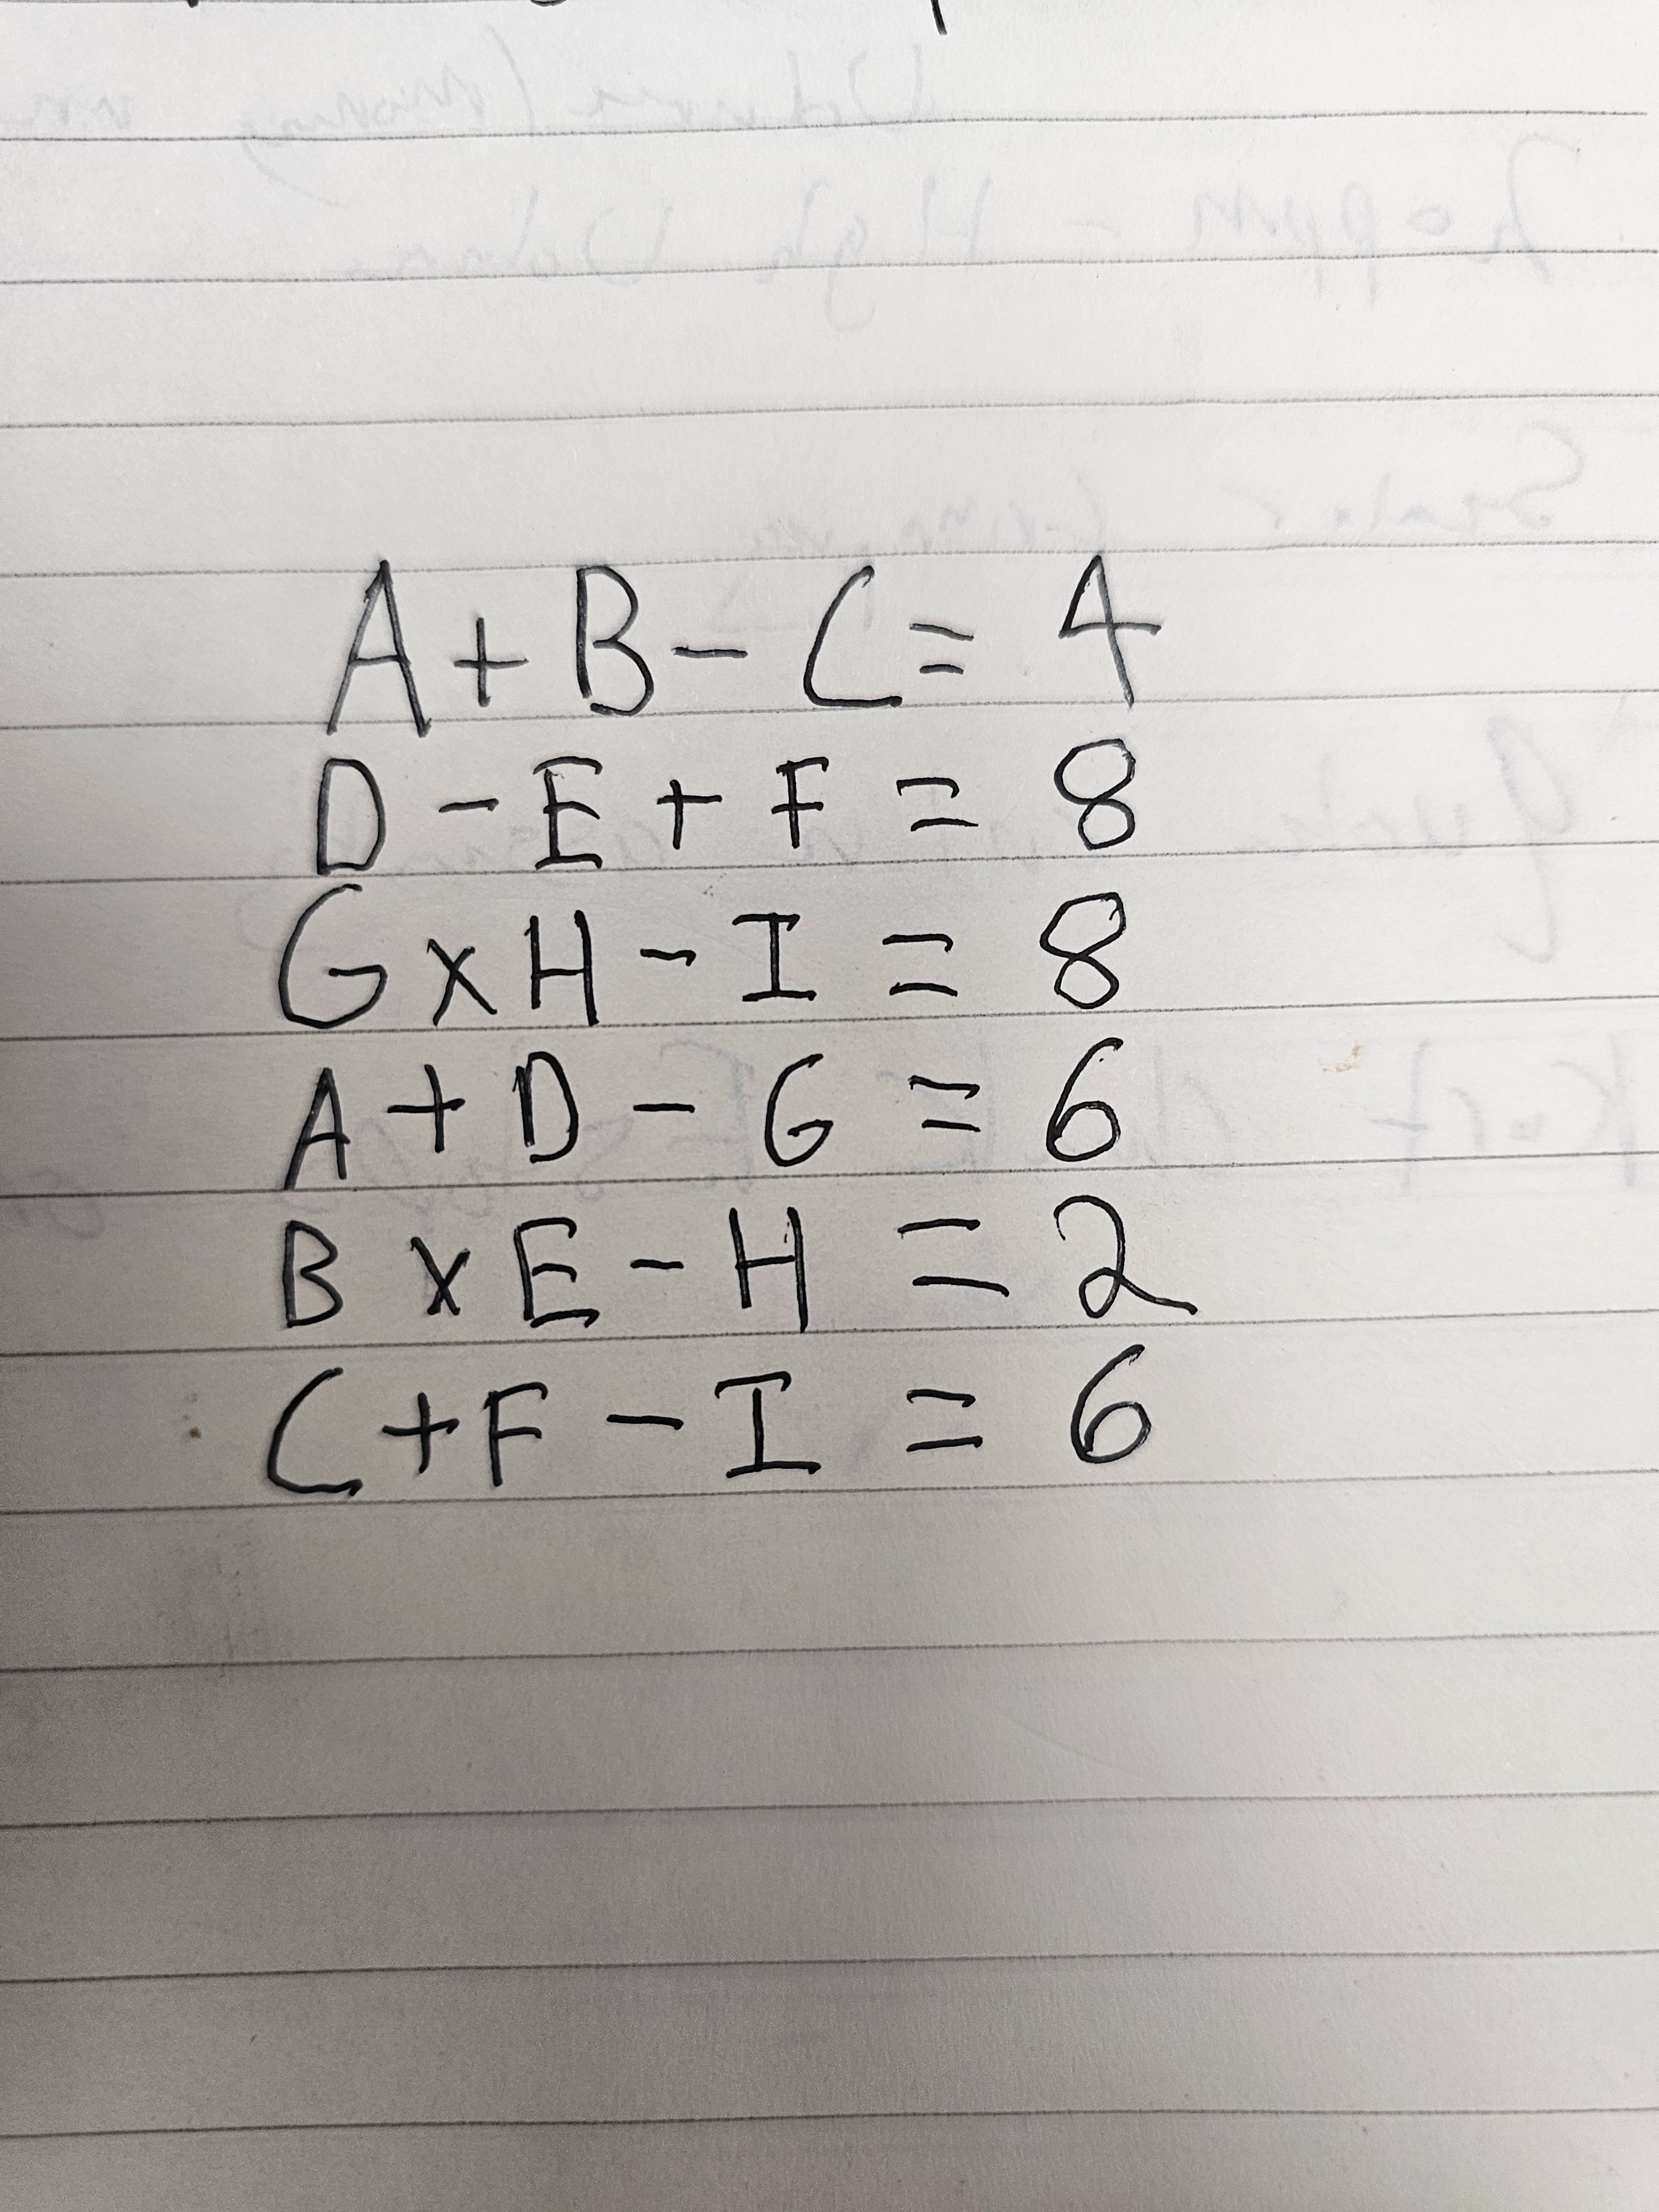 A + B - C = 4
D - E + F = 8
G x H - I = 8
A + D - G = 6
B x E - H = 2
C + F - I = 6